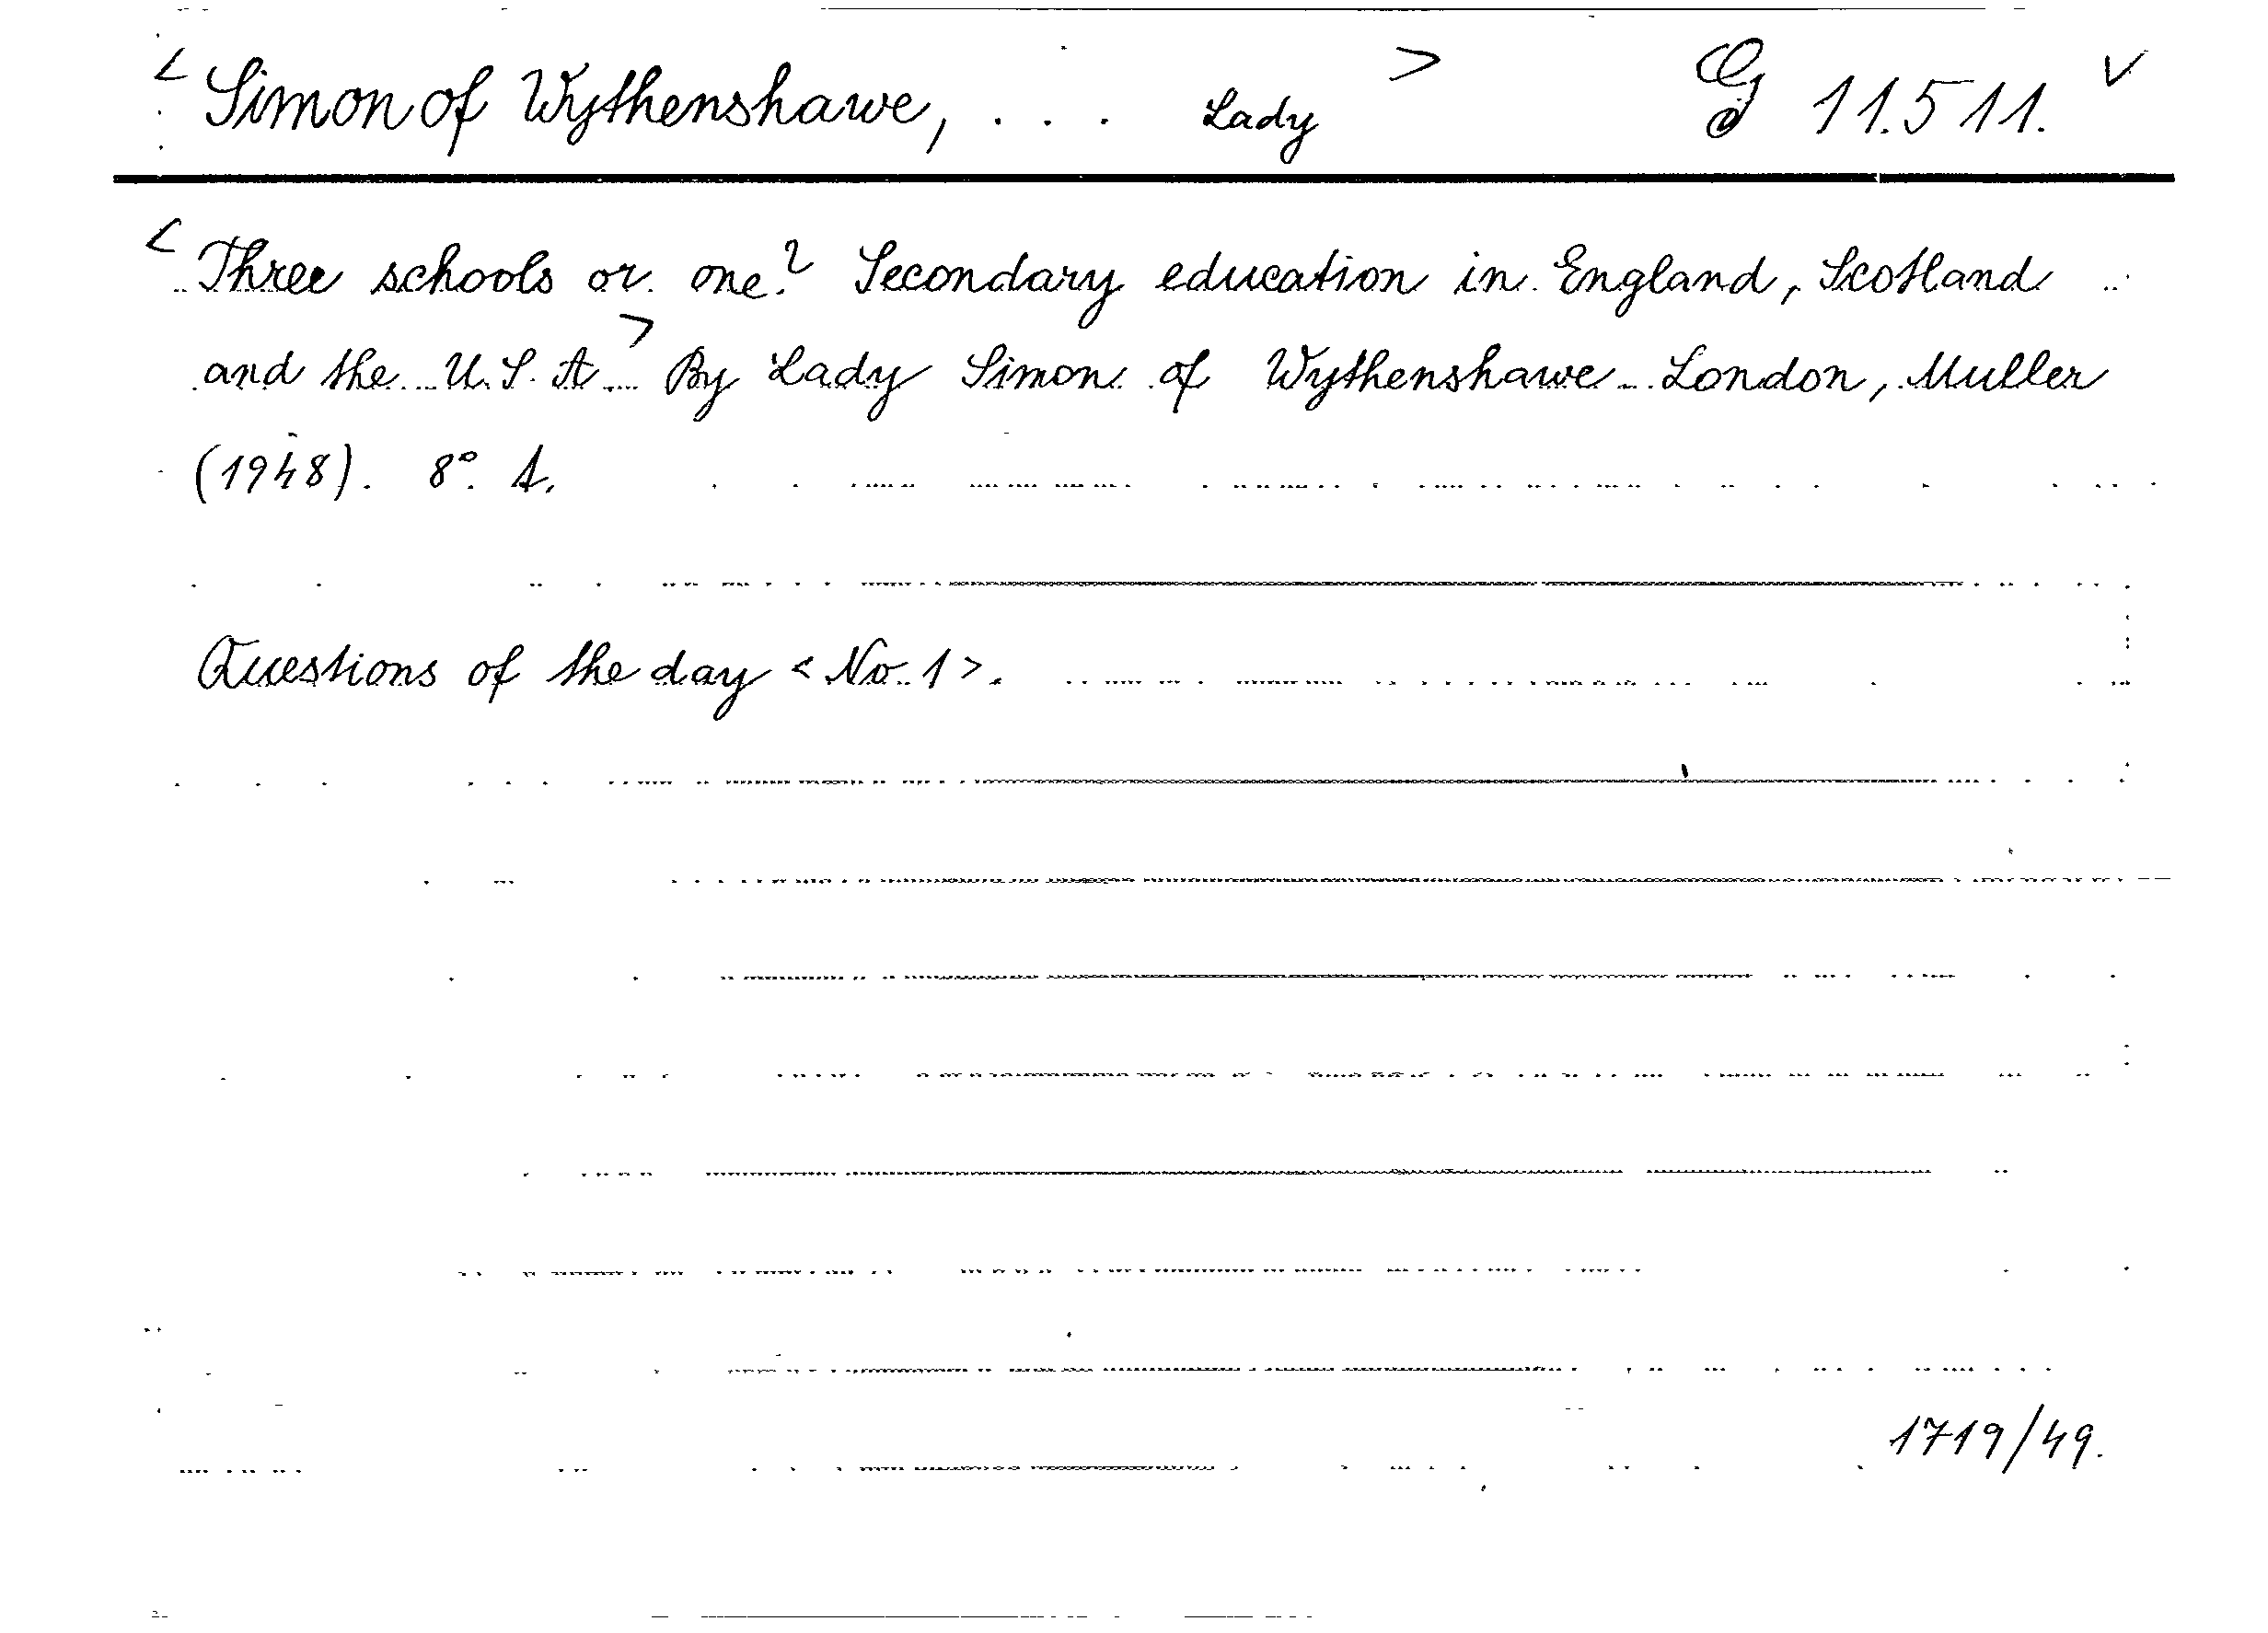 < Simon of Wythenshawe, . . . Lady > G 11.511. v
< Three schools or one? Secondary education in England, Scotland
and the U.S.A. > By Lady Simon of Wythenshawe. London, Muller
(1948). 8°. A.
Questions of the day <No. 1>.
1719/49.